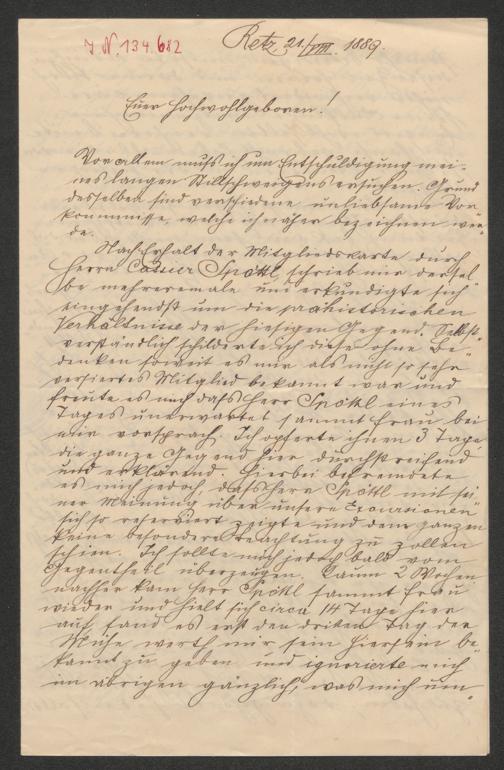 I N. 134.682
Retz, 21./VIII. 1889.
Euer Hochwohlgeboren!
Vor allem muß ich um Entschuldigung mei-
nes langen Stillschweigens ersuchen. Grund
desselben sind verschiedene unliebsame Vor-
kommnisse, welche ich näher bezeichnen wer-
de.
Nach Erhalt der Mitgliedskarte durch
Herrn Cassier Spöttl, schrieb mir dersel-
be mehreremale und erkundigte sich
eingehendst um die prähistorischen
Verhältnisse der hiesigen Gegend. Selbst-
verständlich schilderte ich diese ohne Be-
denken soweit es mir als nicht so sehr
versiertes Mitglied bekannt war und
freute es mich dass Herr Spöttl eines
Tages unerwartet sammt Frau bei
mir vorsprach. Ich opferte ihnen 3 Tage
die ganze Gegend hier durchstreifend
und erklärend. Hierbei befremdete
es mich jedoch, dass Herr Spöttl mit sei-
ner Meinung über unsere Excursionen
sich so reserviert zeigte und dem ganzen
keine besondere Beachtung zu zollen
schien. Ich sollte mich jedoch bald vom
Gegentheil überzeugen. Kaum 2 Wochen
nachher kam Herr Spöttl sammt Frau
wieder und hielt sich circa 14 Tage hier
auf, fand es erst den dritten Tag der
Mühe werth mir sein Hiersein be-
kannt zu geben und ignorierte mich
im übrigen gänzlich, was mich um-